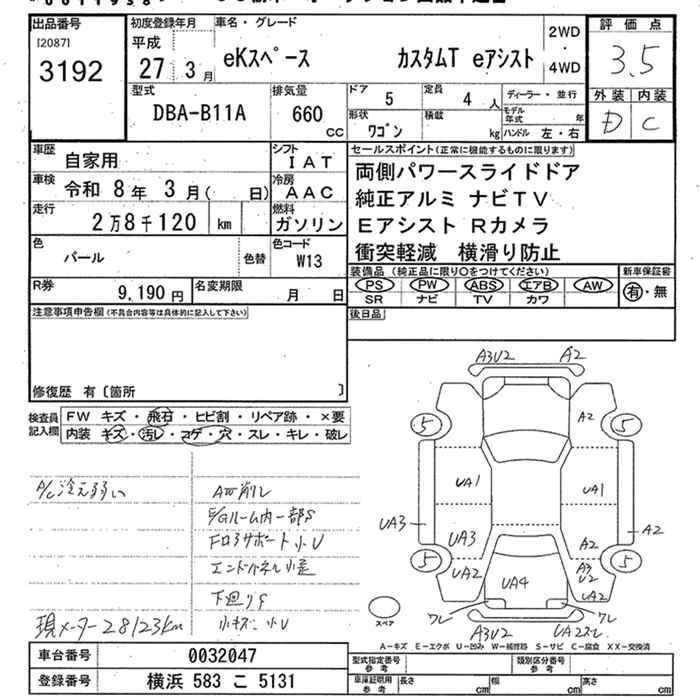 出品番号
[2087]
3192
初度登録年月
平成
27年 3月
車名・グレード
eKスペース カスタムT eアシスト
2WD
・
4WD
評価点
3.5
外装 内装
D C
型式
DBA-B11A
排気量
660
cc
ドア
5
定員
4人
形状
ワゴン
積載
kg
ディーラー・並行
モデル年式 年
ハンドル 左・右
車歴
自家用
シフト
IAT
車検
令和 8年 3月( 日)
冷房
AAC
走行
2万8千120 km
燃料
ガソリン
色
パール
色替
色コード
W13
R券
9,190円
名変期限
月 日
セールスポイント(正常に機能するものに限ります)
両側パワースライドドア
純正アルミ ナビTV
Eアシスト Rカメラ
衝突軽減 横滑り防止
装備品(純正品に限り○をつけてください)
PS PW ABS エアB AW
SR ナビ TV カワ
新車保証書
有・無
後日品
注意事項申告欄(不具合内容等は具体的に記入して下さい)
修復歴 有〔箇所 〕
検査員記入欄
FW キズ・飛石・ヒビ割・リペア跡・×要
内装 キズ・汚レ・コゲ・穴・スレ・キレ・破レ
A/C冷え弱い
AW削レ
E/Gルーム内一部S
Fロアサポート小U
エンドパネル小歪
下廻りS
小キズ、小U
現メーター28123km
A3U2 A2
5 A2 5
UA1 UA1
UA3 UA3 A2 A2
5 UA2 UA4 A3U2 UA2 5
ワレ ワレ
A3U2 UA2スレ
スペア
A-キズ E-エクボ U-凹み W-補修跡 S-サビ C-腐食 XX-交換済
車台番号
0032047
登録番号
横浜 583 こ 5131
型式指定番号
参考
類別区分番号
参考
車庫証明用
参考
長さ cm
幅 cm
高さ cm